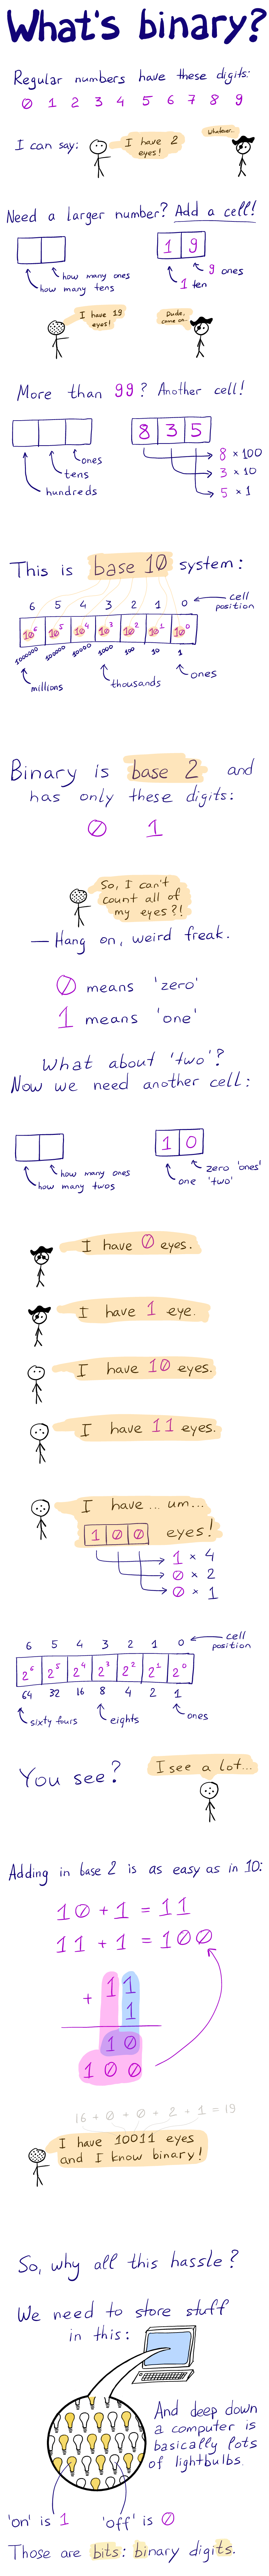 What's binary?
Regular numbers have these digits:
0 1 2 3 4 5 6 7 8 9
I can say:
I have 2
eyes!
Whatever...
Need a larger number? Add a cell!
how many ones
how many tens
1 9
9 ones
1 ten
I have 19
eyes!
Dude,
come on...
More than 99? Another cell!
ones
tens
hundreds
8 3 5
8 × 100
3 × 10
5 × 1
This is base 10 system:
6 5 4 3 2 1 0
cell
position
10⁶ 10⁵ 10⁴ 10³ 10² 10¹ 10⁰
1000000 100000 10000 1000 100 10 1
millions
thousands
ones
Binary is base 2 and
has only these digits:
0 1
So, I can't
count all of
my eyes?!
— Hang on, weird freak.
0 means 'zero'
1 means 'one'
What about 'two'?
Now we need another cell:
how many ones
how many twos
1 0
zero 'ones'
one 'two'
I have 0 eyes.
I have 1 eye.
I have 10 eyes.
I have 11 eyes.
I have... um...
1 0 0 eyes!
1 × 4
0 × 2
0 × 1
6 5 4 3 2 1 0
cell
position
2⁶ 2⁵ 2⁴ 2³ 2² 2¹ 2⁰
64 32 16 8 4 2 1
sixty fours
eights
ones
You see?
I see a lot...
Adding in base 2 is as easy as in 10:
10 + 1 = 11
11 + 1 = 100
11
+
1
10
100
16 + 0 + 0 + 2 + 1 = 19
I have 10011 eyes
and I know binary!
So, why all this hassle?
We need to store stuff
in this:
And deep down
a computer is
basically lots
of lightbulbs.
'on' is 1
'off' is 0
Those are bits: binary digits.